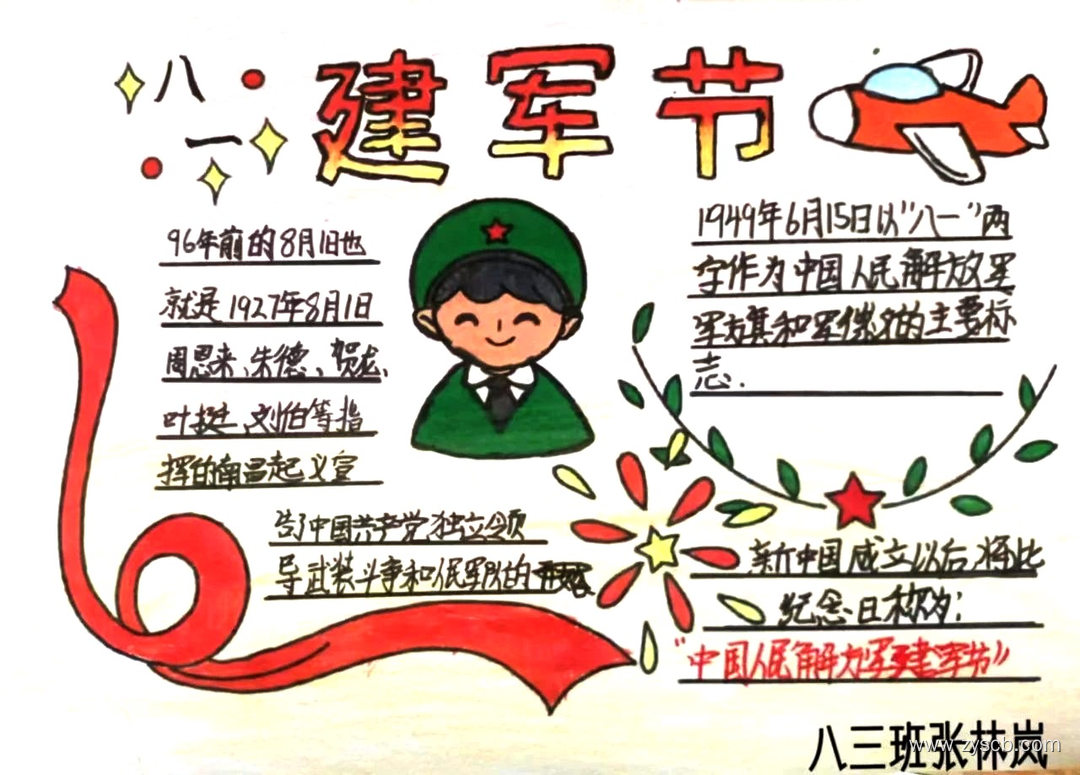 八一 建军节
96年前的8月1日也
就是1927年8月1日
周恩来、朱德、贺龙、
叶挺、刘伯等指
挥的南昌起义宣
告了中国共产党独立领
导武装斗争和人民军队的开始
1949年6月15日以"八一"两
字作为中国人民解放军
军旗和军徽的主要标
志.
新中国成立以后,将此
纪念日称为:
"中国人民解放军建军节"
八三班张林岚
www.zyscb.com